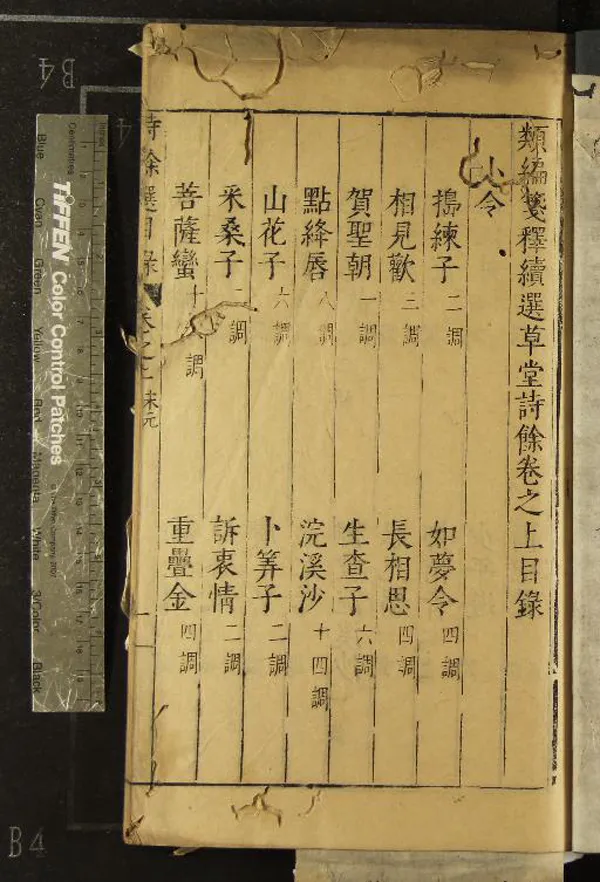 類編箋釋續選草堂詩餘卷之上目錄
小令
搗練子 二調 如夢令 四調
相見歡 三調 長相思 四調
賀聖朝 一調 生查子 六調
點絳唇 八調 浣溪沙 十四調
山花子 六調 卜筭子 二調
采桑子 二調 訴衷情 二調
菩薩蠻 調 重疊金 四調
詩餘選目錄 卷之上
B4
Centimetres
TIFFEN Color Control Patches
Blue
Cyan
Green
Yellow
Red
Magenta
White
3/Color
Black
B4